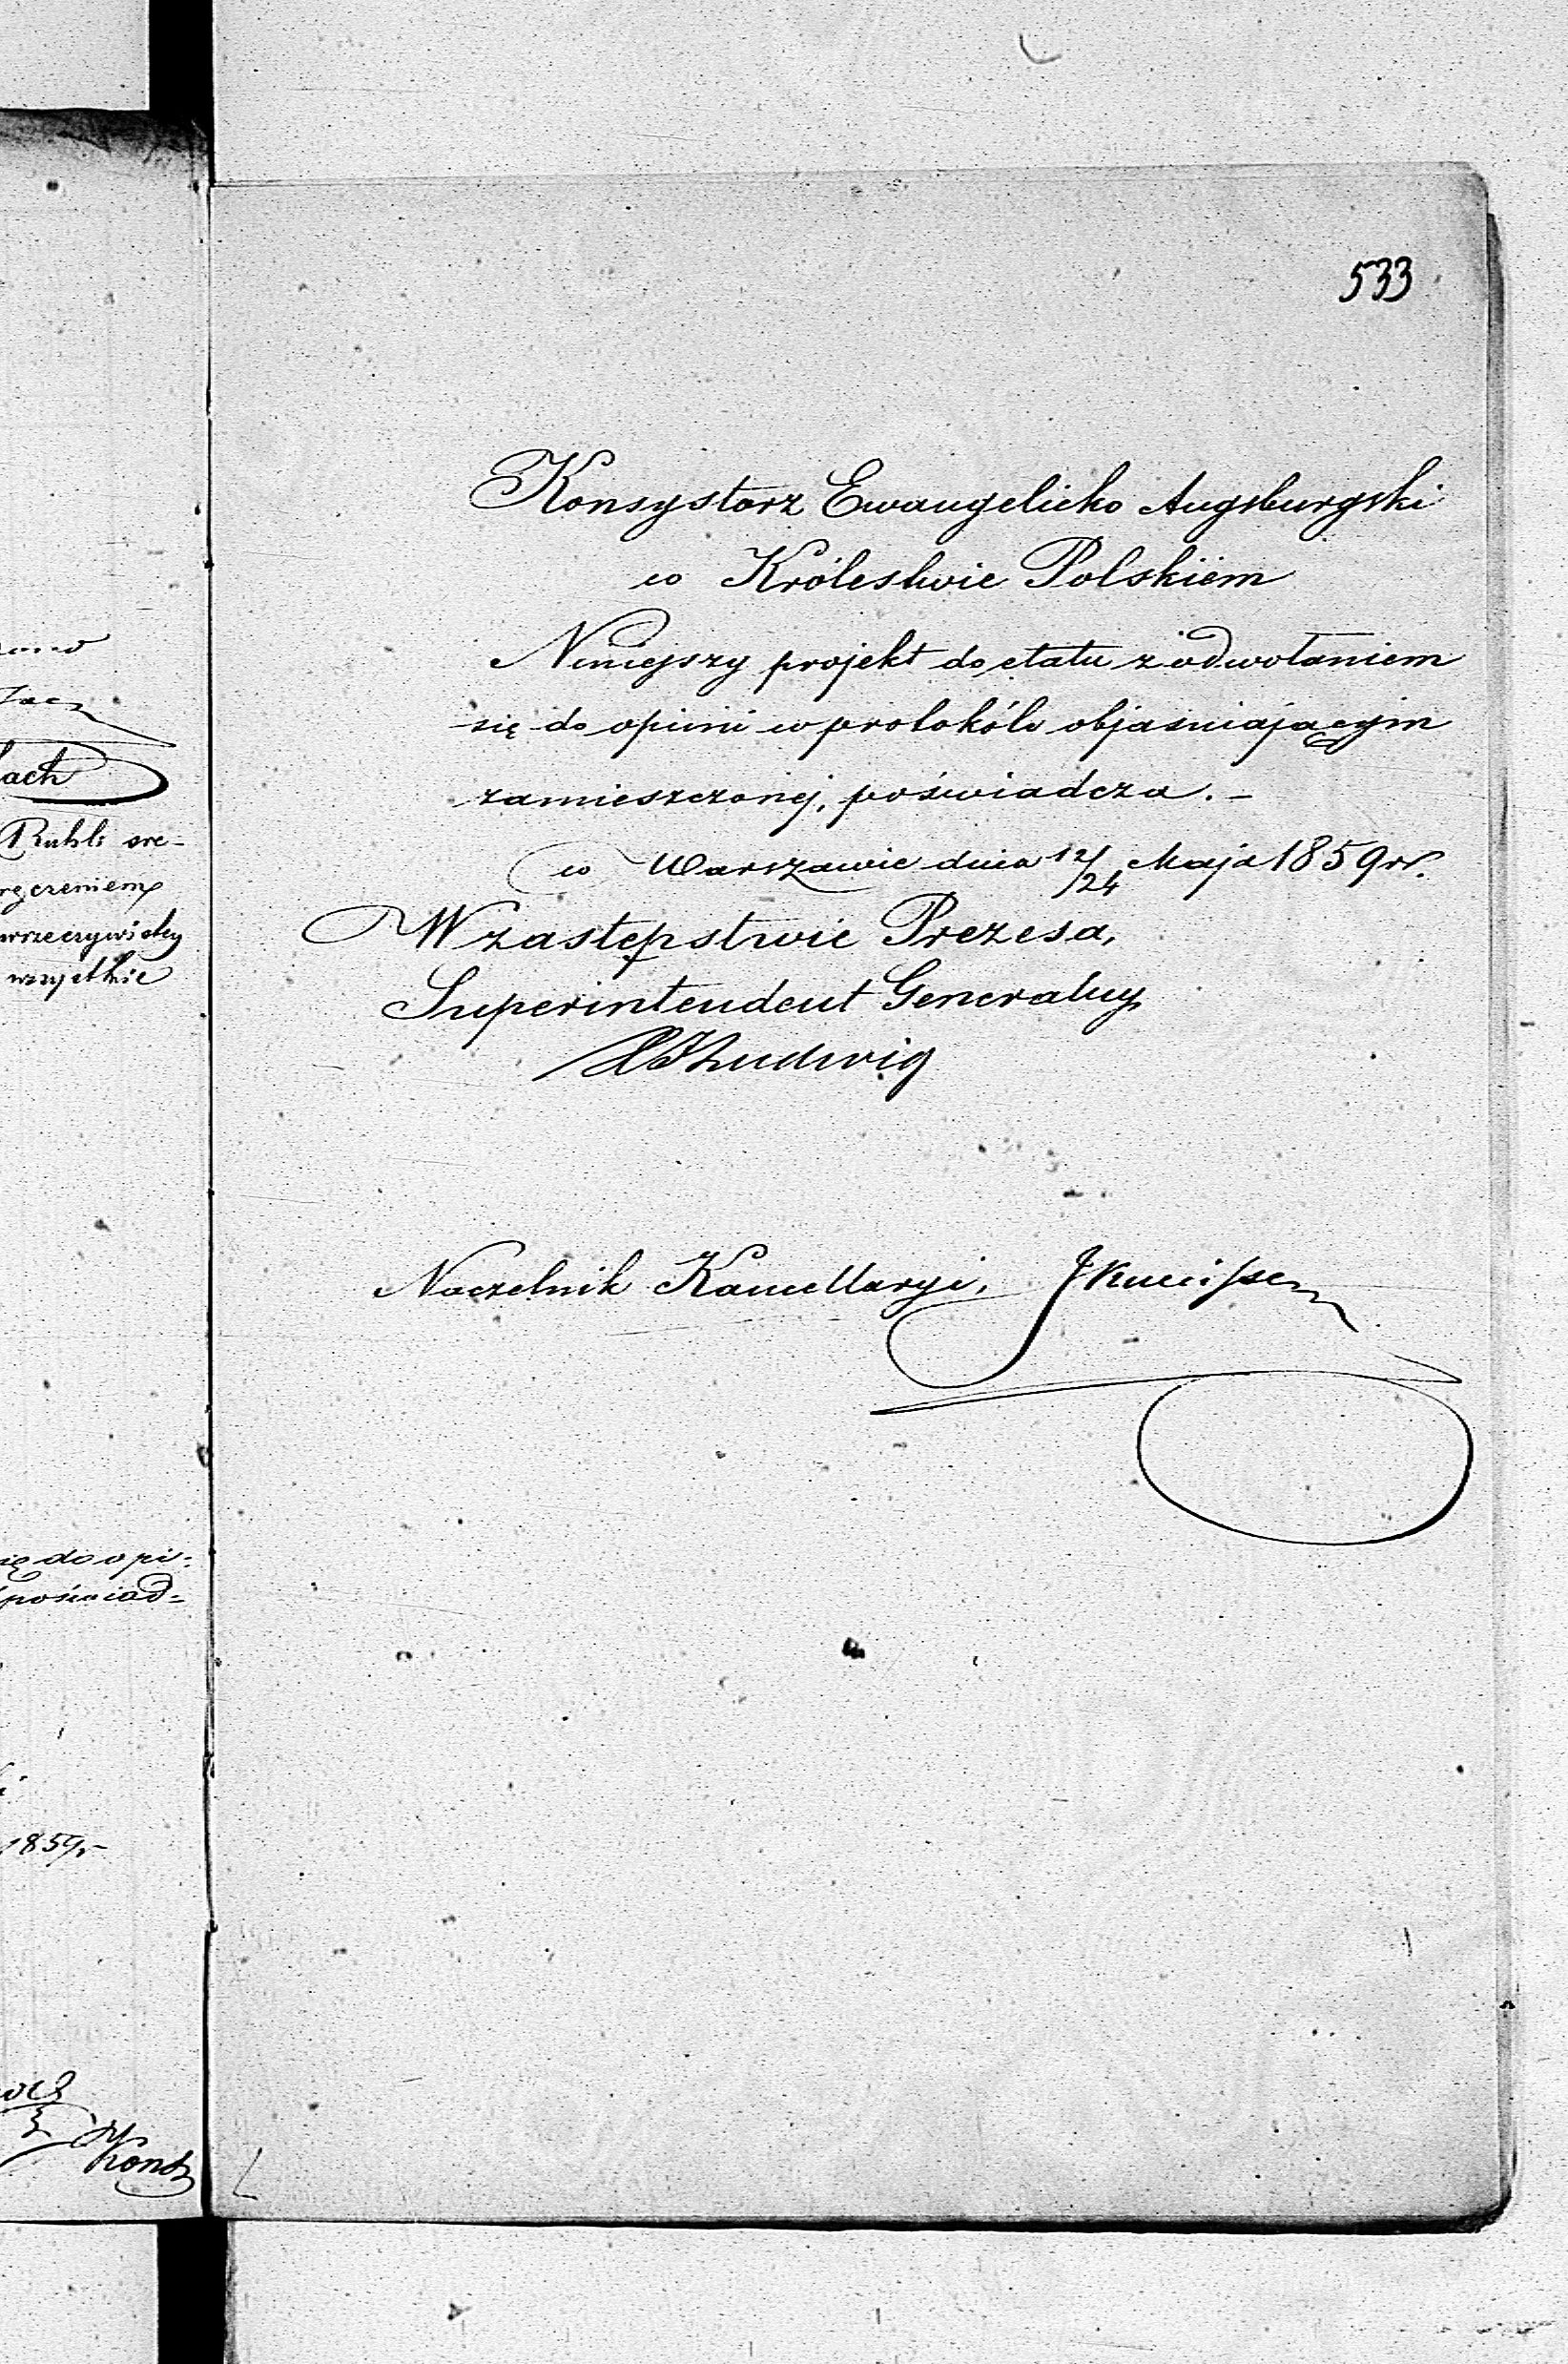 533
Konsystorz Ewangelicko Augsburgski
w Królestwie Polskiém
Niniejszy projekt do etatu z odwołaniem
się do opinii w protokóle objasniającym
zamieszczonej, poświadcza. –
w Warszawie dnia 12/24 Maja 1859 r.
W zastępstwie Prezesa,
Superintendent Generalny
Ludwig
Naczelnik Kancellaryi,
lach
Ruhli sre-
ręczeniem
wrzeczywistey
wszystkie
się do opi-
poświad-
1859 r